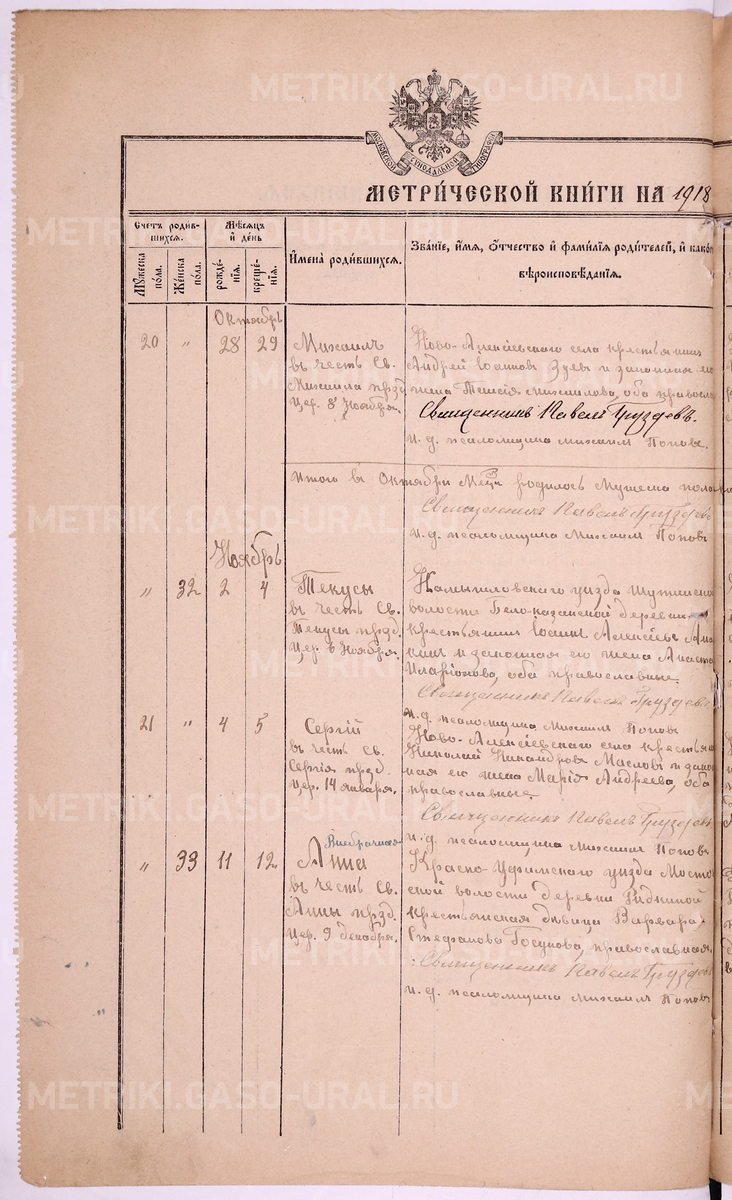 МОСКОВСКОЙ СѴНОДАЛЬНОЙ ТИПОГРАФІИ
МЕТРИ́ЧЕСКОЙ КНИ́ГИ НА 1918
Счетъ роди́вшихся.
Мѣ́сяцъ и҆ де́нь
И҆мена̀ роди́вшихся.
Зва́ніе, и҆́мя, ѻ҆́тчество и҆ фами́лїя роди́телей, и҆ како́г
вѣроисповѣ́данїя.
Мꙋ́жеска по́ла.
Же́нска по́ла.
рожде́нїѧ.
креще́нїѧ.
Октябрь
20 " 28 29
Михаилъ
въ честь Св.
Михаила прзд.
Цер. 8 Ноября.
Ново-Алексѣевскаго села крестьянинъ
Андрей Іоанновъ Зуевъ и законная
жена Таисія Михаилова, оба правосла
Священникъ Павелъ Груздевъ.
и. д. псаломщика Михаилъ Поповъ.
Итого въ Октябрѣ Мцѣ родилось Мужеска пола
Священникъ Павелъ Груздевъ
и. д. псаломщика Михаилъ Поповъ
Ноябрь
" 32 2 4
Текусы
въ честь Св.
Текусы прзд.
Цер. 6 Ноября.
Камышловскаго уѣзда
волости Бело-казанской деревни
крестьянинъ Іоаннъ Алексѣевъ
и законная его жена
Иларіонова, оба православные.
Священникъ Павелъ Груздевъ
и. д. псаломщика Михаилъ Поповъ
21 " 4 5
Сергій
въ честь Св.
Сергія прзд.
Цер. 14 января.
Ново-Алексѣевскаго села крестьян
Николай Никандровъ Масловъ и закон
ная его жена Марія Андреева, оба
православные.
Священникъ Павелъ Груздевъ
и. д. псаломщика Михаилъ Поповъ
" 33 11 12
Внебрачная
Анна
въ честь Св.
Анны прзд.
Цер. 9 декабря.
Красно-Уфимскаго уѣзда Мосто
ской волости деревни
крестьянская дѣвица Варвара
Стефанова православная.
Священникъ Павелъ Груздевъ
и. д. псаломщика Михаилъ Поповъ
METRIKI.GASO-URAL.RU